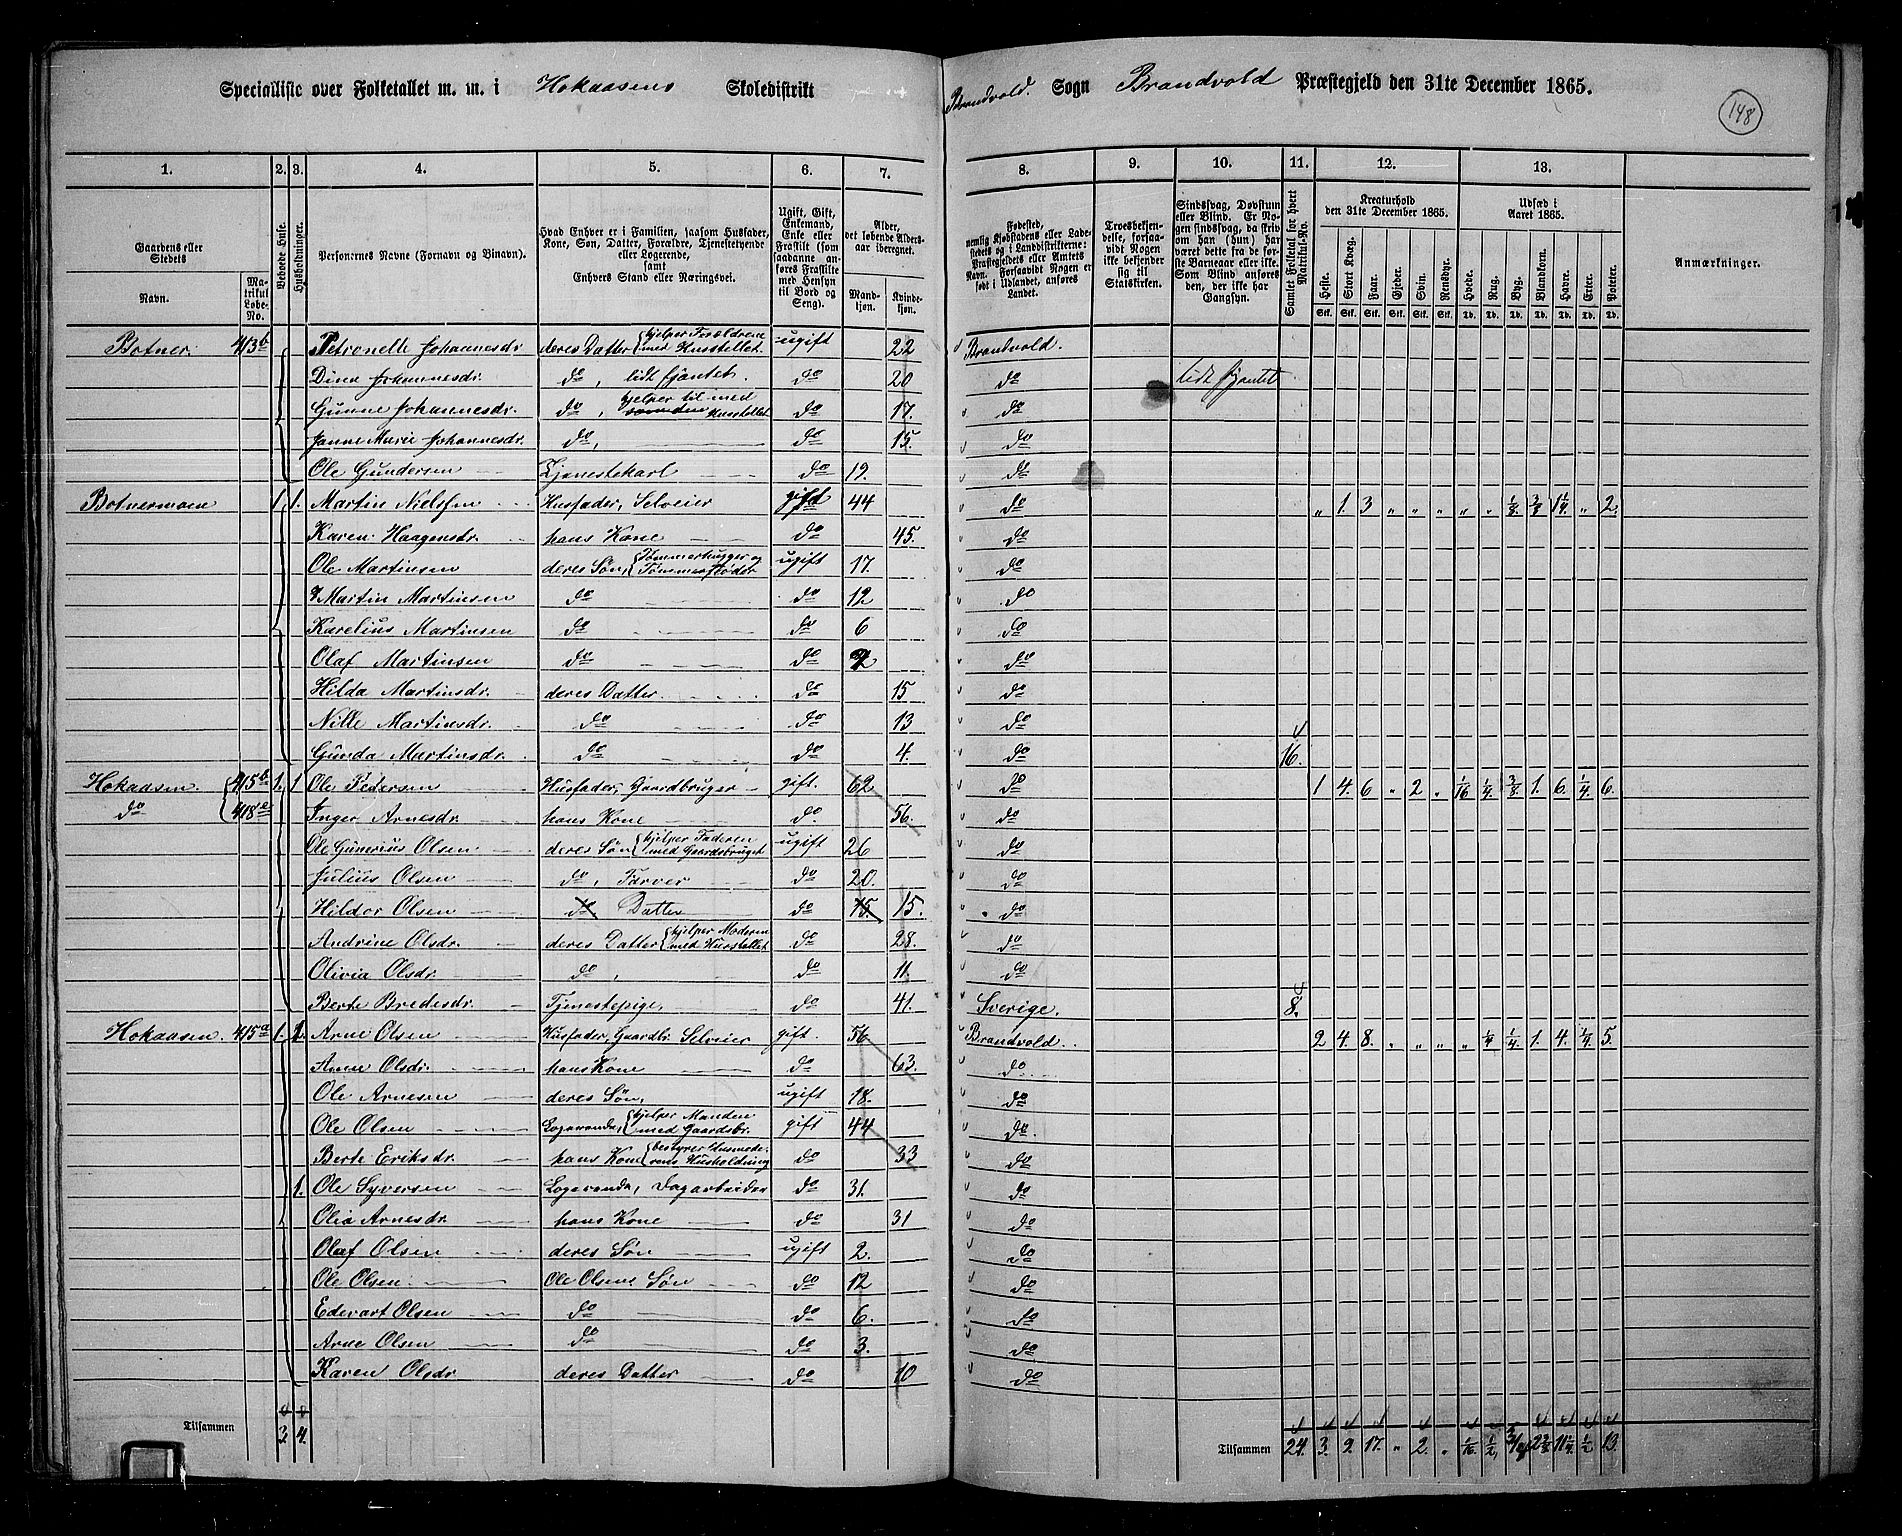 Specialliste over Folketallet m. m. i Hokaasens Skoledistrikt Brandvold. Sogn Brandvold Præstegjeld den 31te December 1865.
148
1. 2. 3. 4. 5. 6. 7. 8. 9. 10. 11. 12. 13.
Gaardens eller Stedets
Navn.
Matrikul Løbe-No.
Beboede Huse.
Husholdninger.
Personernes Navne (Fornavn og Binavn).
Hvad Enhver er i Familien, saasom Husfader, Kone, Søn, Datter, Forældre, Tjenestetyende eller Logerende, samt Enhvers Stand eller Næringsvei.
Ugift, Gift, Enkemand, Enke eller Fraskilt (som saadanne anføres Fraskilte med Hensyn til Bord og Seng).
Alder, det løbende Aldersaar iberegnet.
Mandkjøn. Kvindekjøn.
Fødested, nemlig Kjøbstadens eller Ladestedets og i Landdistrikterne: Præstegjeldets eller Amtets Navn. Forsaavidt Nogen er født i Udlandet, anføres Landet.
Troesbekjendelse, forsaavidt Nogen ikke bekjender sig til Statskirken.
Sindssvag, Døvstum eller Blind. Er Nogen sindssvag, da skrives om han (hun) har været dette fra de første Barneaar eller ikke. Som Blind anføres der, der ikke har Gangsyn.
Samlet Folketal for hvert Matrikul-No.
Kreaturhold den 31te December 1865.
Heste. Stort Kvæg. Faar. Gjeder. Svin. Rensdyr.
Stk. Stk. Stk. Stk. Stk. Stk.
Udsæd i Aaret 1865.
Hvede. Rug. Byg. Blandkorn. Havre. Erter. Poteter.
Td. Td. Td. Td. Td. Td. Td.
Anmærkninger.
Botner. 413b Petronelle Johannesdr. deres Datter hjelper Forældrene med Husstellet. ugift 22 Brandvold.
Dina Johannesdr. do, lidt fjantet. do 20 do lidt fjantet
Gunne Johannesdr. do, hjelper til med Husstellet do 17. do
Janne Marie Johannesdr. do, do 15. do
Ole Gundersen Tjenestekarl do 19. do
Botnermoen 1 1. Martin Nielsen Husfader, Selveier gift 44 do „ 1. 3 „ „ „ „ „ 1/8. 3/8 1 1/4 „ 2.
Karen Haagensdr. hans Kone do 45. do
Ole Martinsen deres Søn, Tømmerhugger og Tømmerfløder ugift 17. do
Martin Martinsen do do 12 do
Karelius Martinsen do do 6 do
Olaf Martinsen do do 2 do
Hilda Martinsdr. deres Datter. do 15 do
Nille Martinsdr. do do 13 do
Gunda Martinsdr. do do 4. do 16.
Hokaasen. 415b 1. 1 Ole Pedersen Husfader, Gaardbruger gift. 62 do 1 4. 6 „ 2 „ 1/16 1/4. 3/8 1. 6. 1/4. 6.
do 418e Inger Arnesdr. hans Kone do. 56. do
Ole Gunerius Olsen deres Søn hjelper Faderen med Gaardsbruget ugift 26 do
Julius Olsen do, Farver do 20. do
Hildor Olsen do Datter do 15. 15. do
Andrine Olsdr. deres Datter hjelper Moderen med Husstellet do 28. do
Olivia Olsdr. do, do 11. do
Berte Bredesdr. Tjenestepige. do 41. Sverige. 8.
Hokaasen. 415a 1. 1. Arne Olsen Husfader, Gaardbr. Selveier gift. 56 Brandvold. 2 4. 8. „ „ „ „ 1/4 1/4. 1. 4. 1/4. 5.
Anne Olsdr. hans Kone do 63. do
Ole Arnesen deres Søn, ugift 18. do
Ole Olsen Logerende, hjelper Manden med Gaardsbr. gift 44 do.
Berte Eriksdr. hans Kone bestyrer Husmoderens Husholdning do 33 do
1. Ole Syversen Logerende, Dagarbeider do 31. do
Olia Arnesdr. hans Kone do 31 do
Olaf Olsen deres Søn ugift 2. do
Ole Olsen. Ole Olsens Søn do 12 do
Edevart Olsen do do 6. do
Arne Olsen do do 3. do
Karen Olsdr. deres Datter do 10 do
Tilsammen 3. 4. Tilsammen 24. 3. 9. 17. „ 2. „ 1/16 1/2. 3/4 2 3/8 11 1/4 1/2 13.